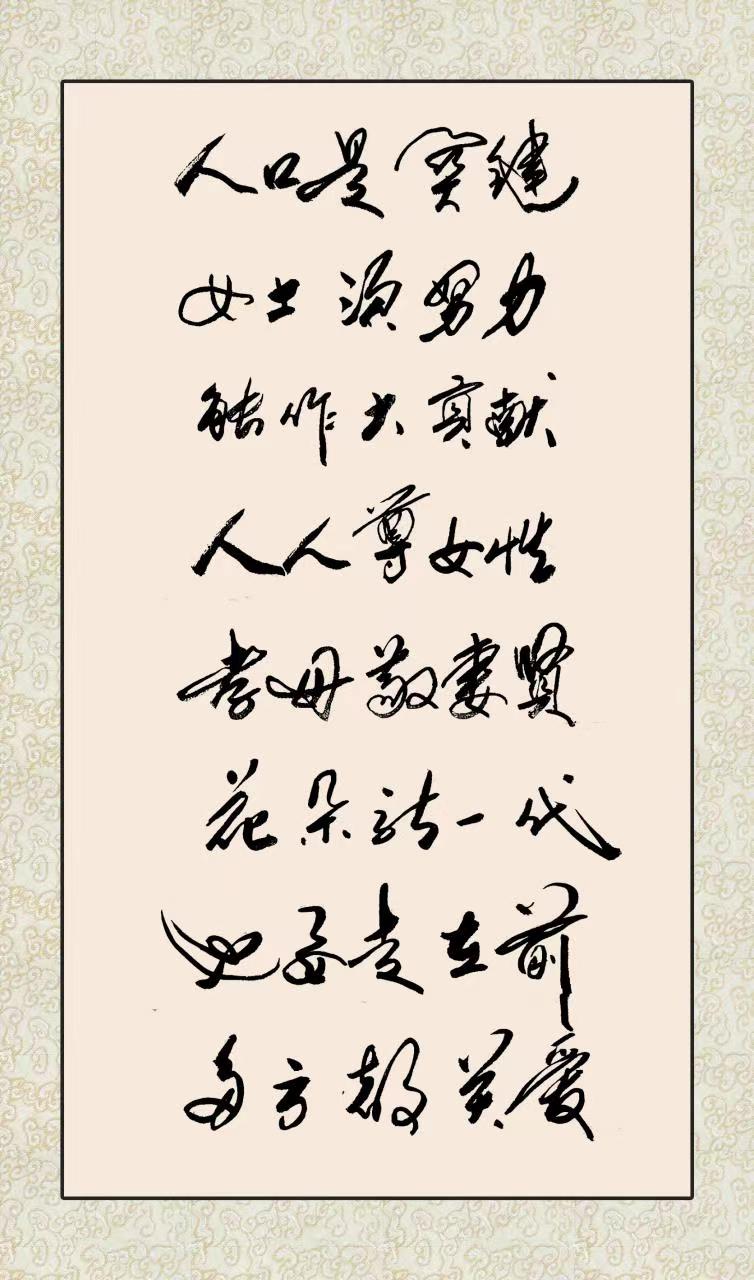 人口是关键
女士须努力
能作大贡献
人人尊女性
孝母敬妻贤
花朵一代
她走在前
多方都关爱